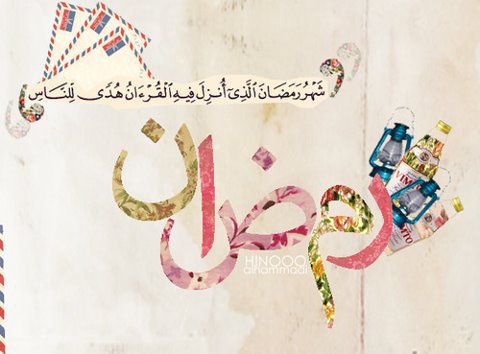 شَهْرُ رَمَضَانَ ٱلَّذِىٓ أُنزِلَ فِيهِ ٱلْقُرْءَانُ هُدًى لِّلنَّاسِ
رمضان
VIMTO
HINOOO
alhammadi